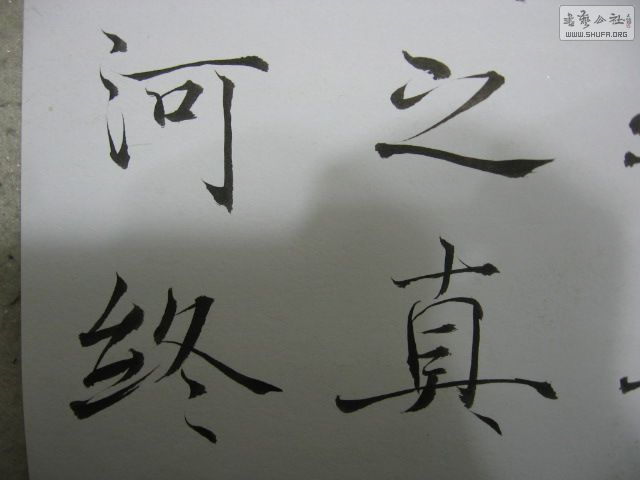 之真
河终
書藝公社
WWW.SHUFA.ORG